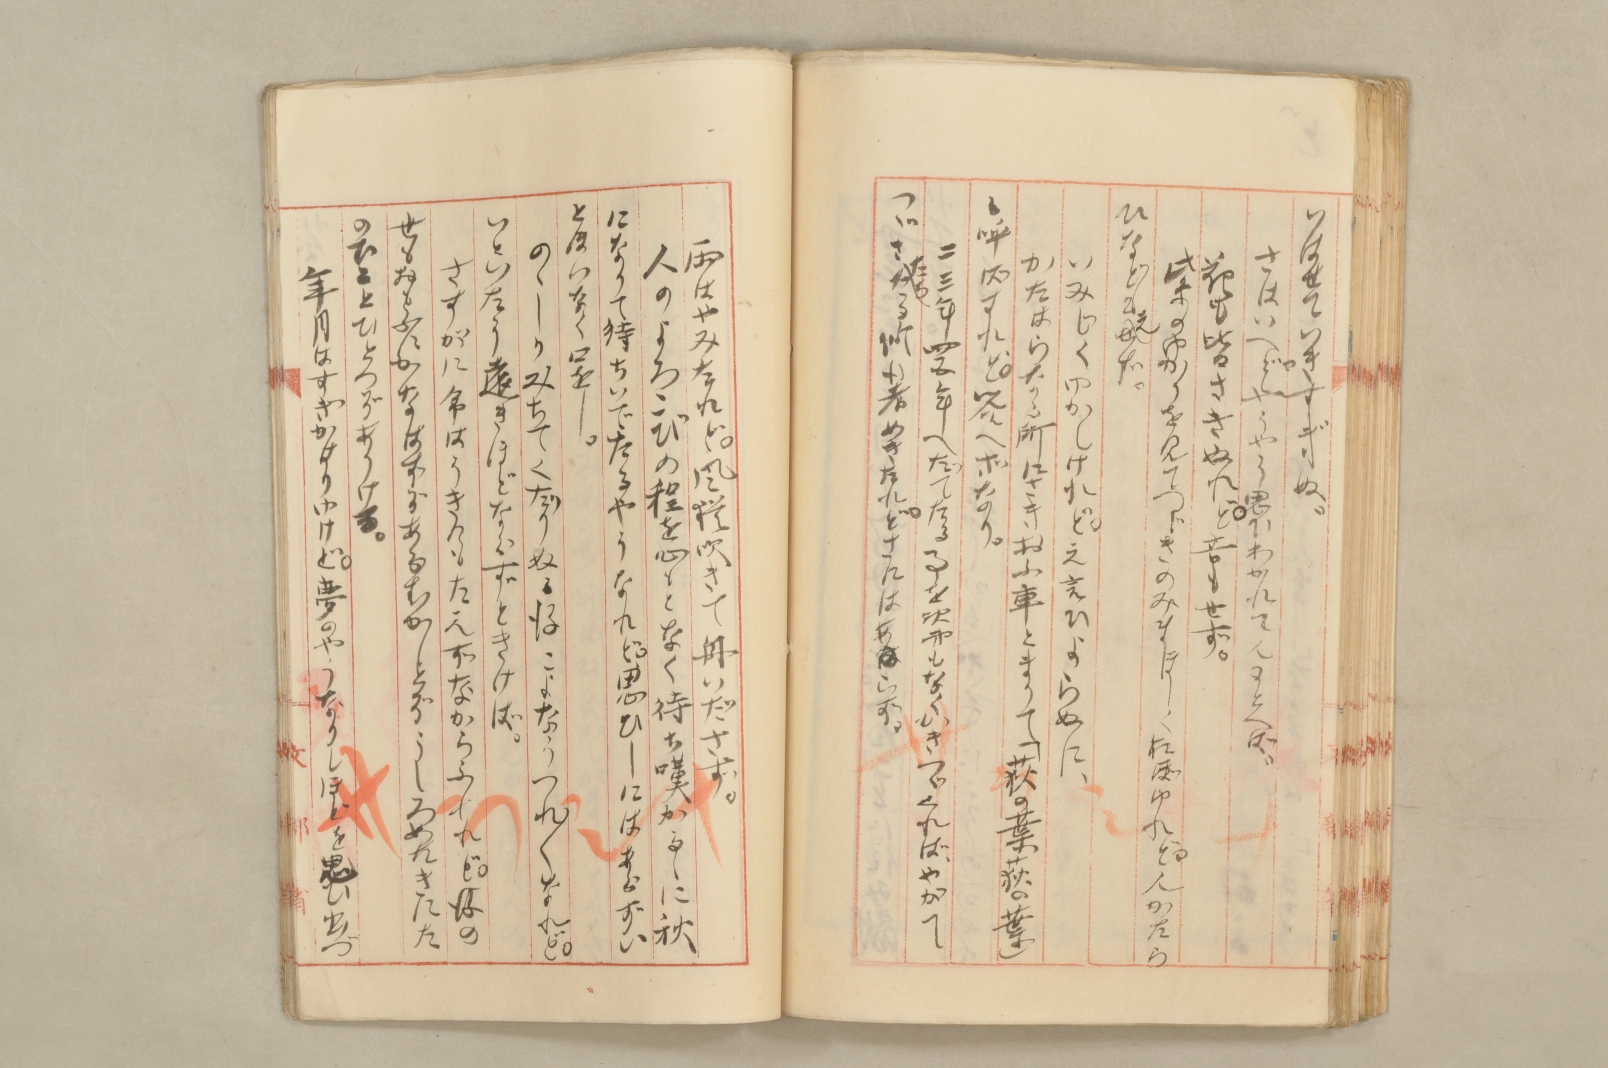 いはせていきすぎぬ。
さはいへど。やうやう思ひわかれて人まとへば。
花も皆さきぬれど。音もせず。
紫のゆかりを見てつゞきのみまほしくおぼゆれど。人かたら
ひなどもえせず。
いみじくゆかしけれど。え言ひよらぬに、
かたはらなる所にさきおふ車とまりて「荻の葉荻の葉」
と呼ばすれど。答へざなり。
二三年四五年へだてたる事を次第もなくかきつゞくれば、やがて
つゞきたる修行者めきたれど。さにはあらず。
雨はやみたれど。風猶吹きて舟いださず。
人のよろこびの程を心もとなく待ち嘆かるゝに秋
になりて待ちいでたるやうなれど。思ひしにはあらずい
とほいなく口をし。
のゝしりみちてくだりぬる後こよなうつれ〴〵なれど。
いといたう遠きほどならずときけば。
さすがに命はうきにもたえずながらふれど。後の
世もおもふにかなはずぞあらむかしとぞうしろめたきにた
のむことひとつぞありける。
年月はすぎかはりゆけど。夢のやうなりしほどを思ひ出づ